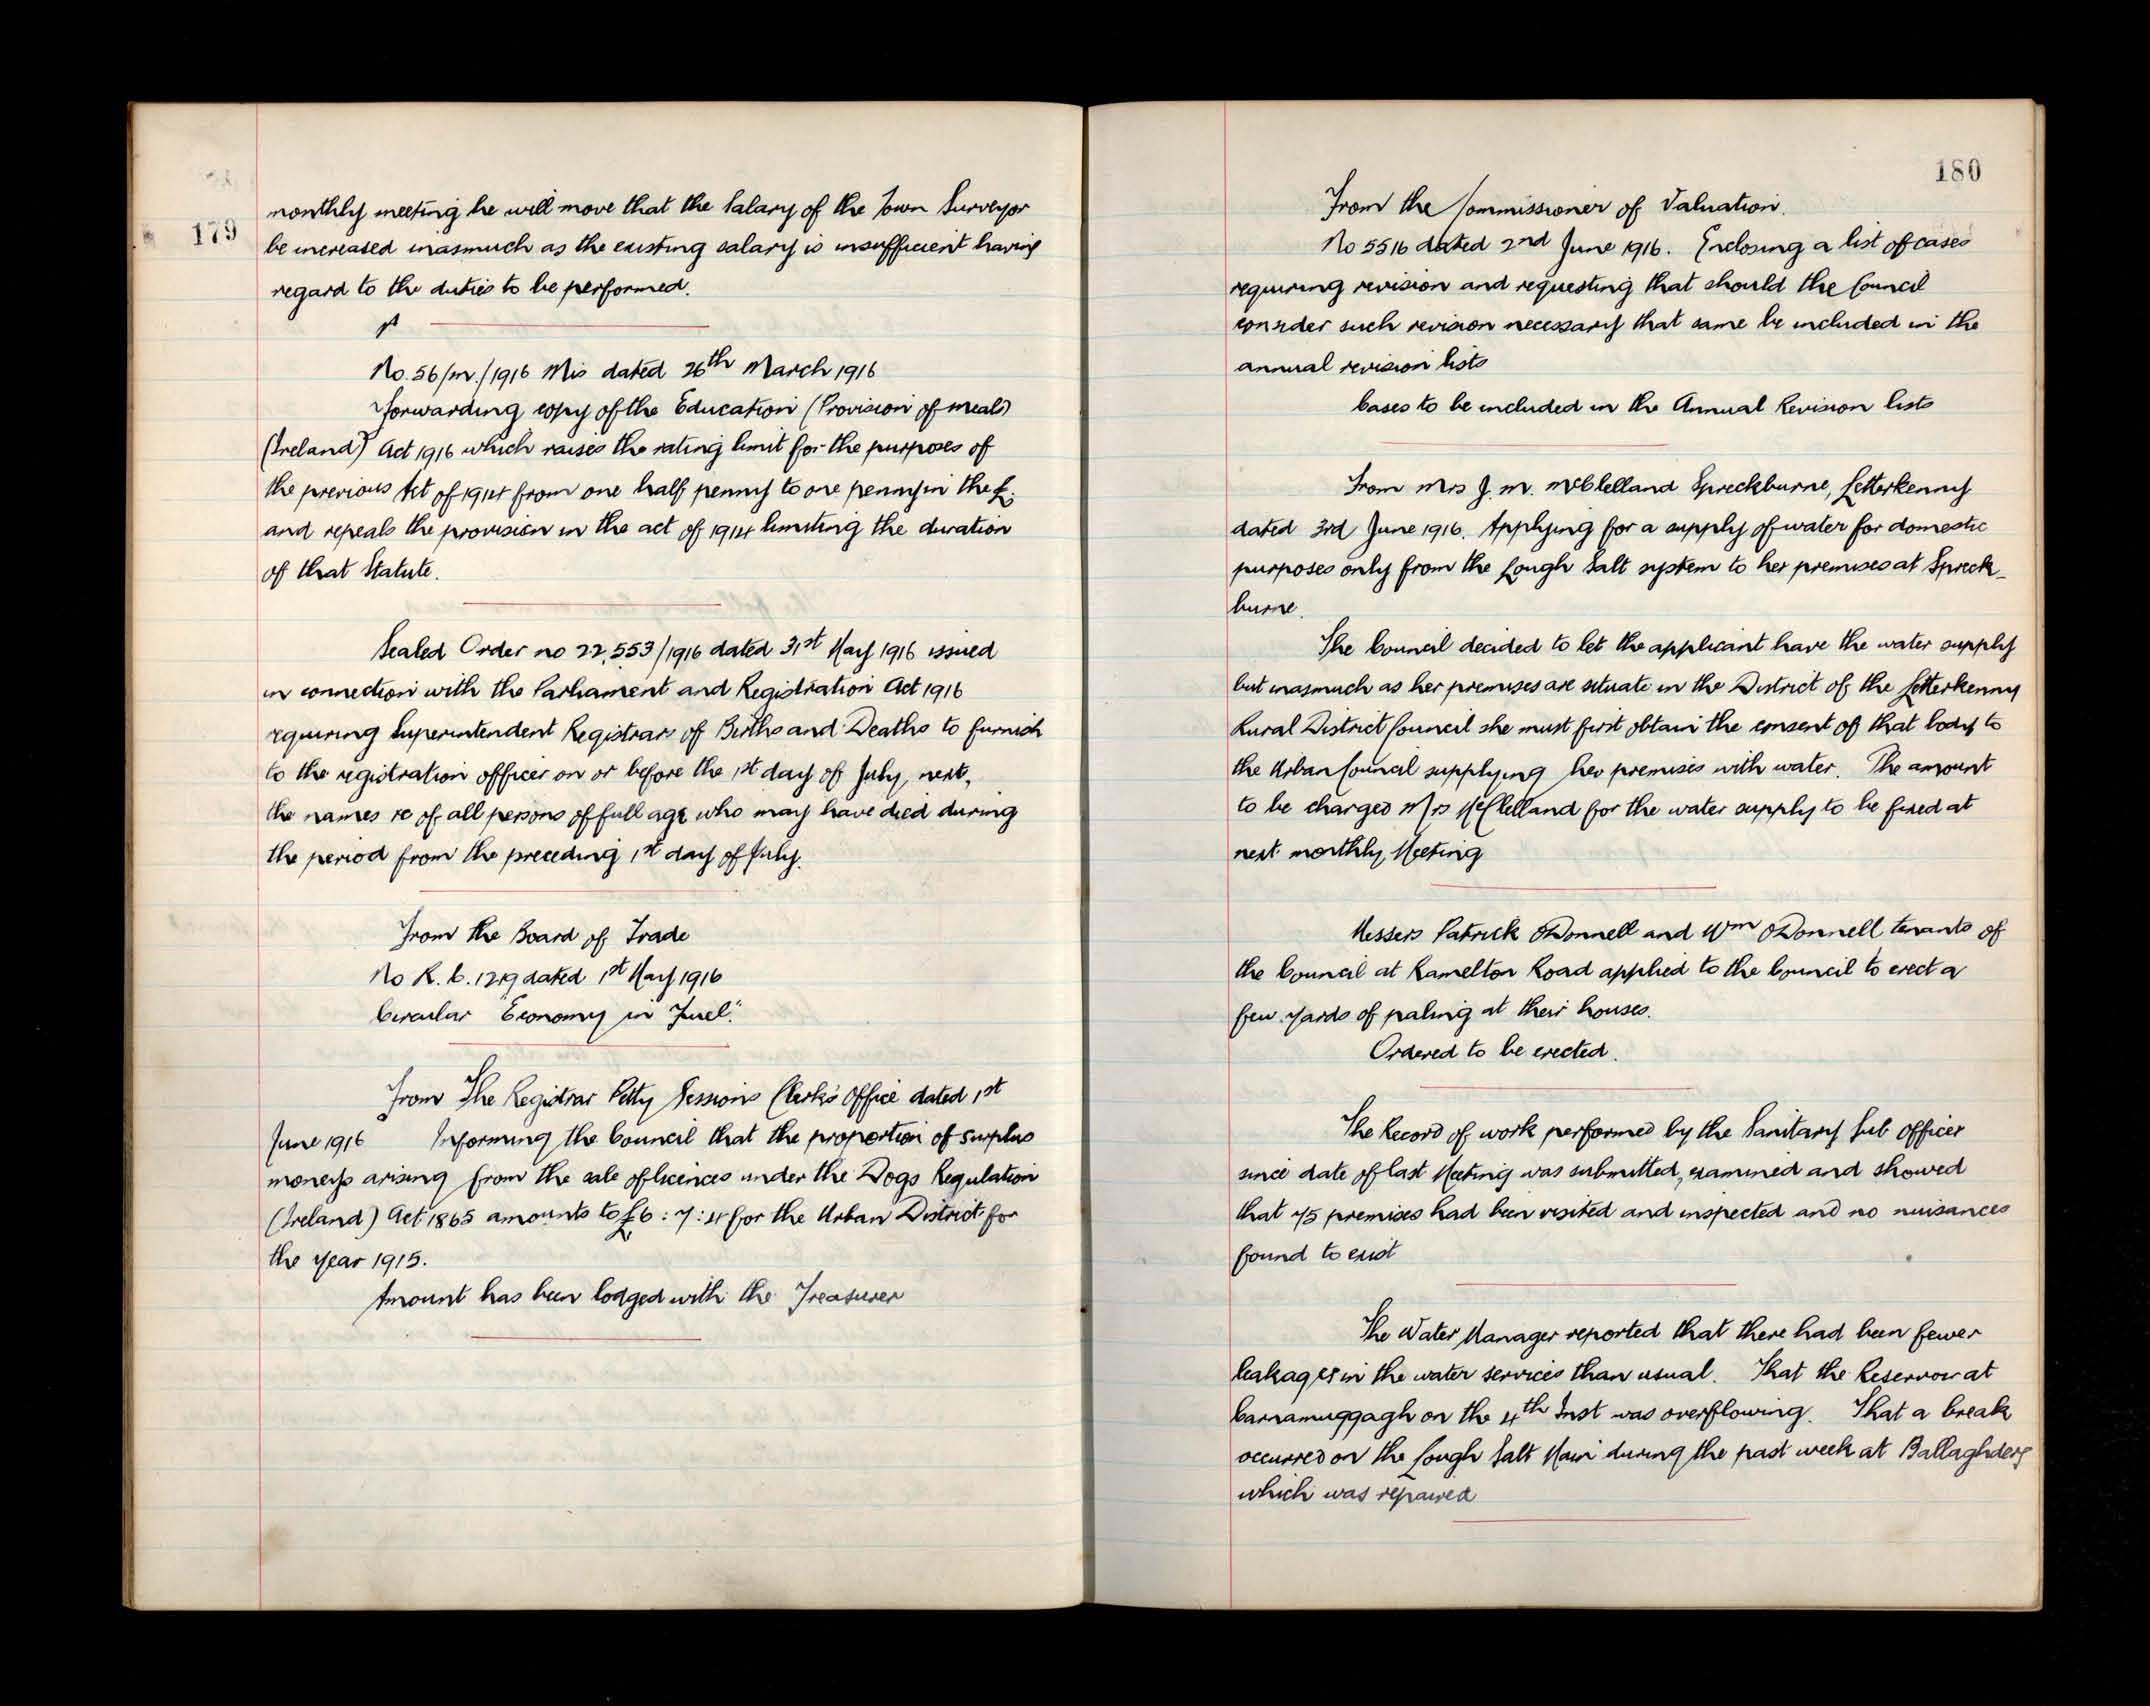 179
monthly meeting he will move that the Salary of the Town Surveyor
be increased inasmuch as the existing salary is insufficient having
regard to the duties to be performed.
No. 56/m./1916 Mis dated 26th March 1916
Forwarding copy of the Education (Provision of Meals)
(Ireland) Act 1916 which raises the rating limit for the purposes of
the previous Act of 1914 from one half penny to one penny in the £;
and repeals the provision in the act of 1914 limiting the duration
of that Statute.
Sealed Order no 22,553/1916 dated 31st May 1916 issued
in connection with the Parliament and Registration Act 1916
requiring Superintendent Registrars of Births and Deaths to furnish
to the registration officer on or before the 1st day of July, next,
the names re of all persons of full age who may have died during
the period from the preceding 1st day of July.
From the Board of Trade
No R. C. 1219 dated 1st May 1916
Circular "Economy in Fuel".
From The Registrar Petty Sessions Clerks Office dated 1st
June 1916 Informing the Council that the proportion of surplus
moneys arising from the sale of licences under the Dogs Regulation
(Ireland) Act 1865 amounts to £6:7:4 for the Urban District for
the year 1915.
Amount has been lodged with the Treasurer
180
From the Commissioner of Valuation.
No 5516 dated 2nd June 1916. Enclosing a list of cases
requiring revision and requesting that should the Council
consider such revision necessary that same be included in the
annual revision lists
Cases to be included in the Annual Revision lists
From Mrs J. M. McClelland Spreckburne, Letterkenny
dated 3rd June 1916. Applying for a supply of water for domestic
purposes only from the Lough Salt system to her premises at Spreck-
burne.
The Council decided to let the applicant have the water supply
but inasmuch as her premises are situate in the District of the Letterkenny
Rural District Council she must first obtain the consent of that body to
the Urban Council supplying her premises with water. The amount
to be charged Mrs McClelland for the water supply to be fixed at
next monthly Meeting
Messers Patrick ODonnell and Wm ODonnell tenants of
the Council at Ramelton Road applied to the Council to erect a
few yards of paling at their houses.
Ordered to be erected.
The Record of work performed by the Sanitary Sub Officer
since date of last Meeting was submitted, examined and showed
that 75 premises had been visited and inspected and no nuisances
found to exist
The Water Manager reported that there had been fewer
leakages in the water services than usual. That the Reservoir at
Carnamuggagh on the 4th Inst was overflowing. That a break
occurred on the Lough Salt Main during the past week at Ballaghdery
which was repaired